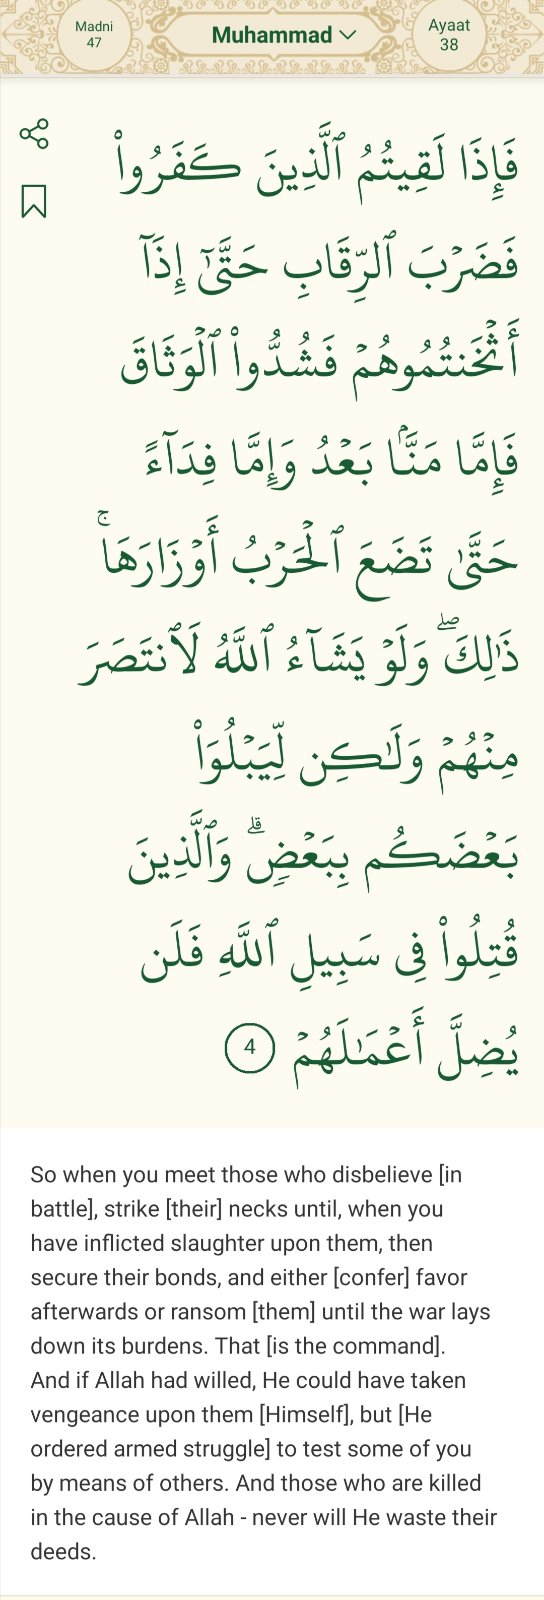 Madni
47
Muhammad
Ayaat
38
فَإِذَا لَقِيتُمُ ٱلَّذِينَ كَفَرُوا۟
فَضَرْبَ ٱلرِّقَابِ حَتَّىٰٓ إِذَآ
أَثْخَنتُمُوهُمْ فَشُدُّوا۟ ٱلْوَثَاقَ
فَإِمَّا مَنًّۢا بَعْدُ وَإِمَّا فِدَآءً
حَتَّىٰ تَضَعَ ٱلْحَرْبُ أَوْزَارَهَا ۚ
ذَٰلِكَ ۖ وَلَوْ يَشَآءُ ٱللَّهُ لَٱنتَصَرَ
مِنْهُمْ وَلَـٰكِن لِّيَبْلُوَا۟
بَعْضَكُم بِبَعْضٍ ۗ وَٱلَّذِينَ
قُتِلُوا۟ فِى سَبِيلِ ٱللَّهِ فَلَن
يُضِلَّ أَعْمَـٰلَهُمْ 4
So when you meet those who disbelieve [in
battle], strike [their] necks until, when you
have inflicted slaughter upon them, then
secure their bonds, and either [confer] favor
afterwards or ransom [them] until the war lays
down its burdens. That [is the command].
And if Allah had willed, He could have taken
vengeance upon them [Himself], but [He
ordered armed struggle] to test some of you
by means of others. And those who are killed
in the cause of Allah - never will He waste their
deeds.